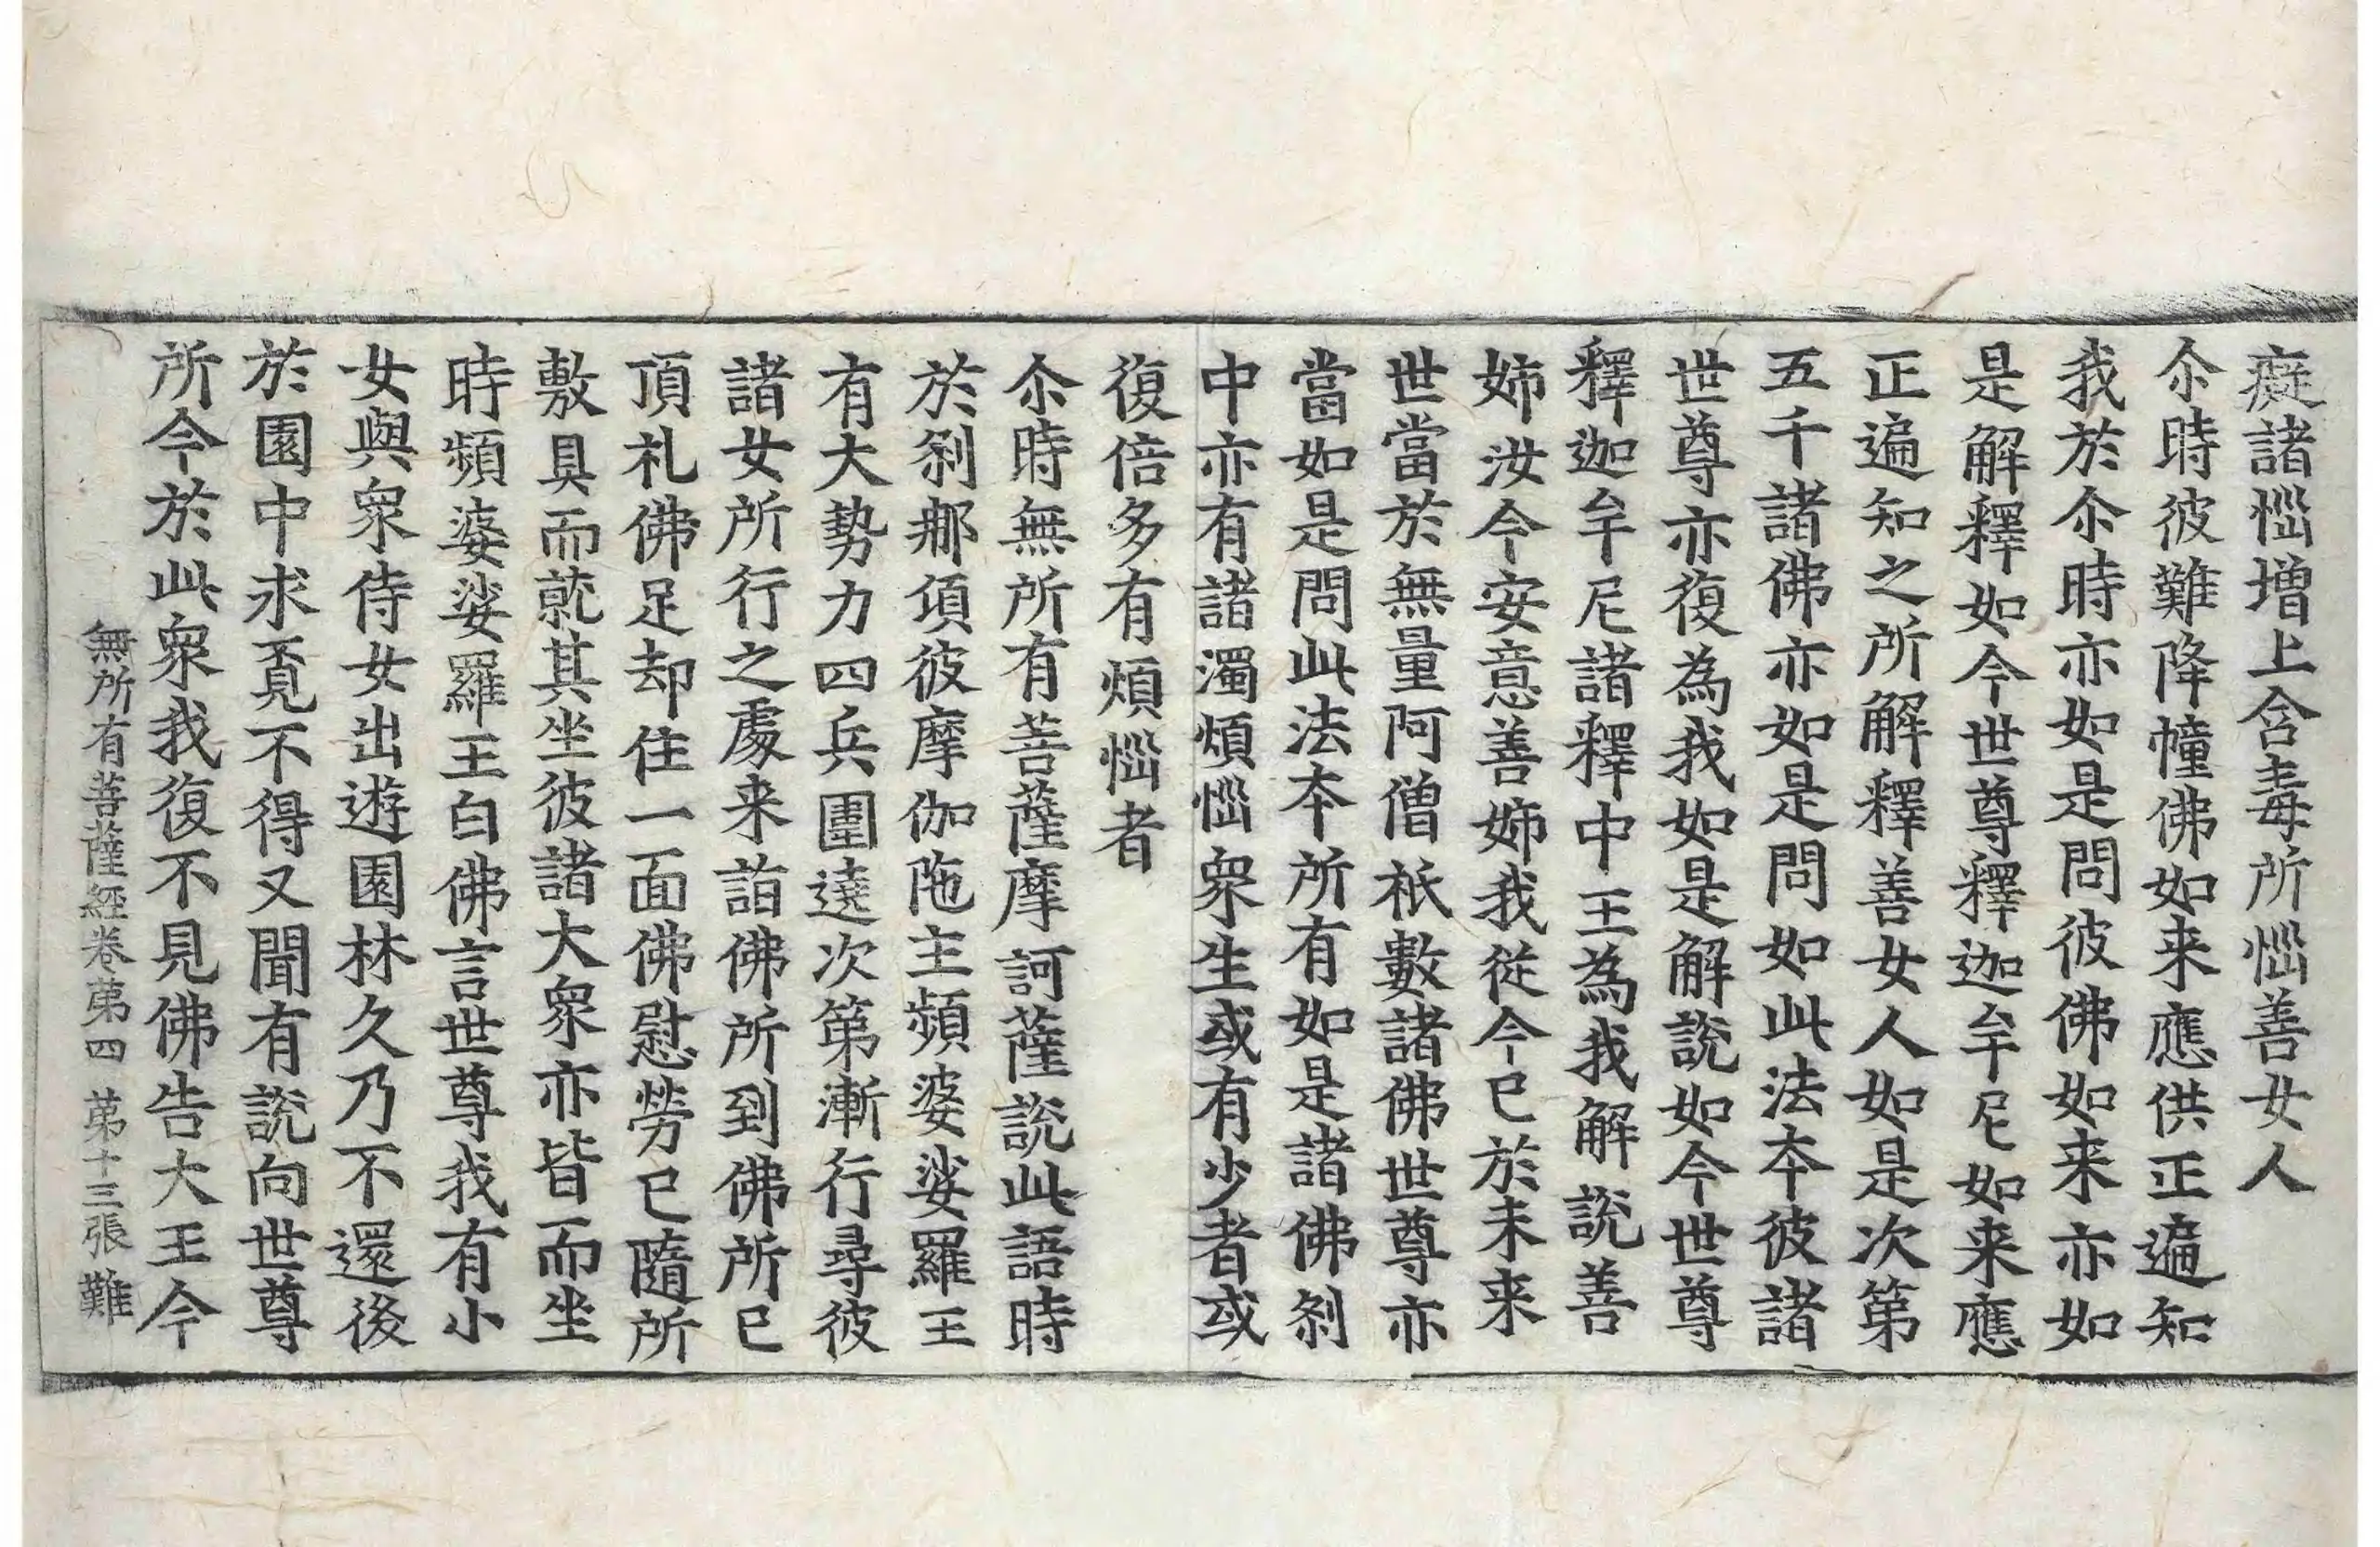 癡諸惱增上含毒所惱善女人
尒時彼難降幢佛如来應供正遍知
我於尒時亦如是問彼佛如来亦如
是解釋如今世尊釋迦牟尼如来應
正遍知之所解釋善女人如是次第
五千諸佛亦如是問如此法本彼諸
世尊亦復為我如是解說如今世尊
釋迦牟尼諸釋中王為我解說善
姉汝今安意善姉我從今已於未来
世當於無量阿僧祇數諸佛世尊亦
當如是問此法本所有如是諸佛刹
中亦有諸濁煩惱衆生或有少者或
復倍多有煩惱者
尒時無所有菩薩摩訶薩說此語時
於刹那頃彼摩伽陁主頻婆娑羅王
有大勢力四兵圍遶次第漸行尋彼
諸女所行之處来詣佛所到佛所已
頂礼佛足却住一面佛慰勞已隨所
敷具而就其坐彼諸大衆亦皆而坐
時頻婆娑羅王白佛言世尊我有小
女與衆侍女出遊園林久乃不還後
於園中求覔不得又聞有說向世尊
所今於此衆我復不見佛告大王今
無所有菩薩經卷第四 第十三張 難